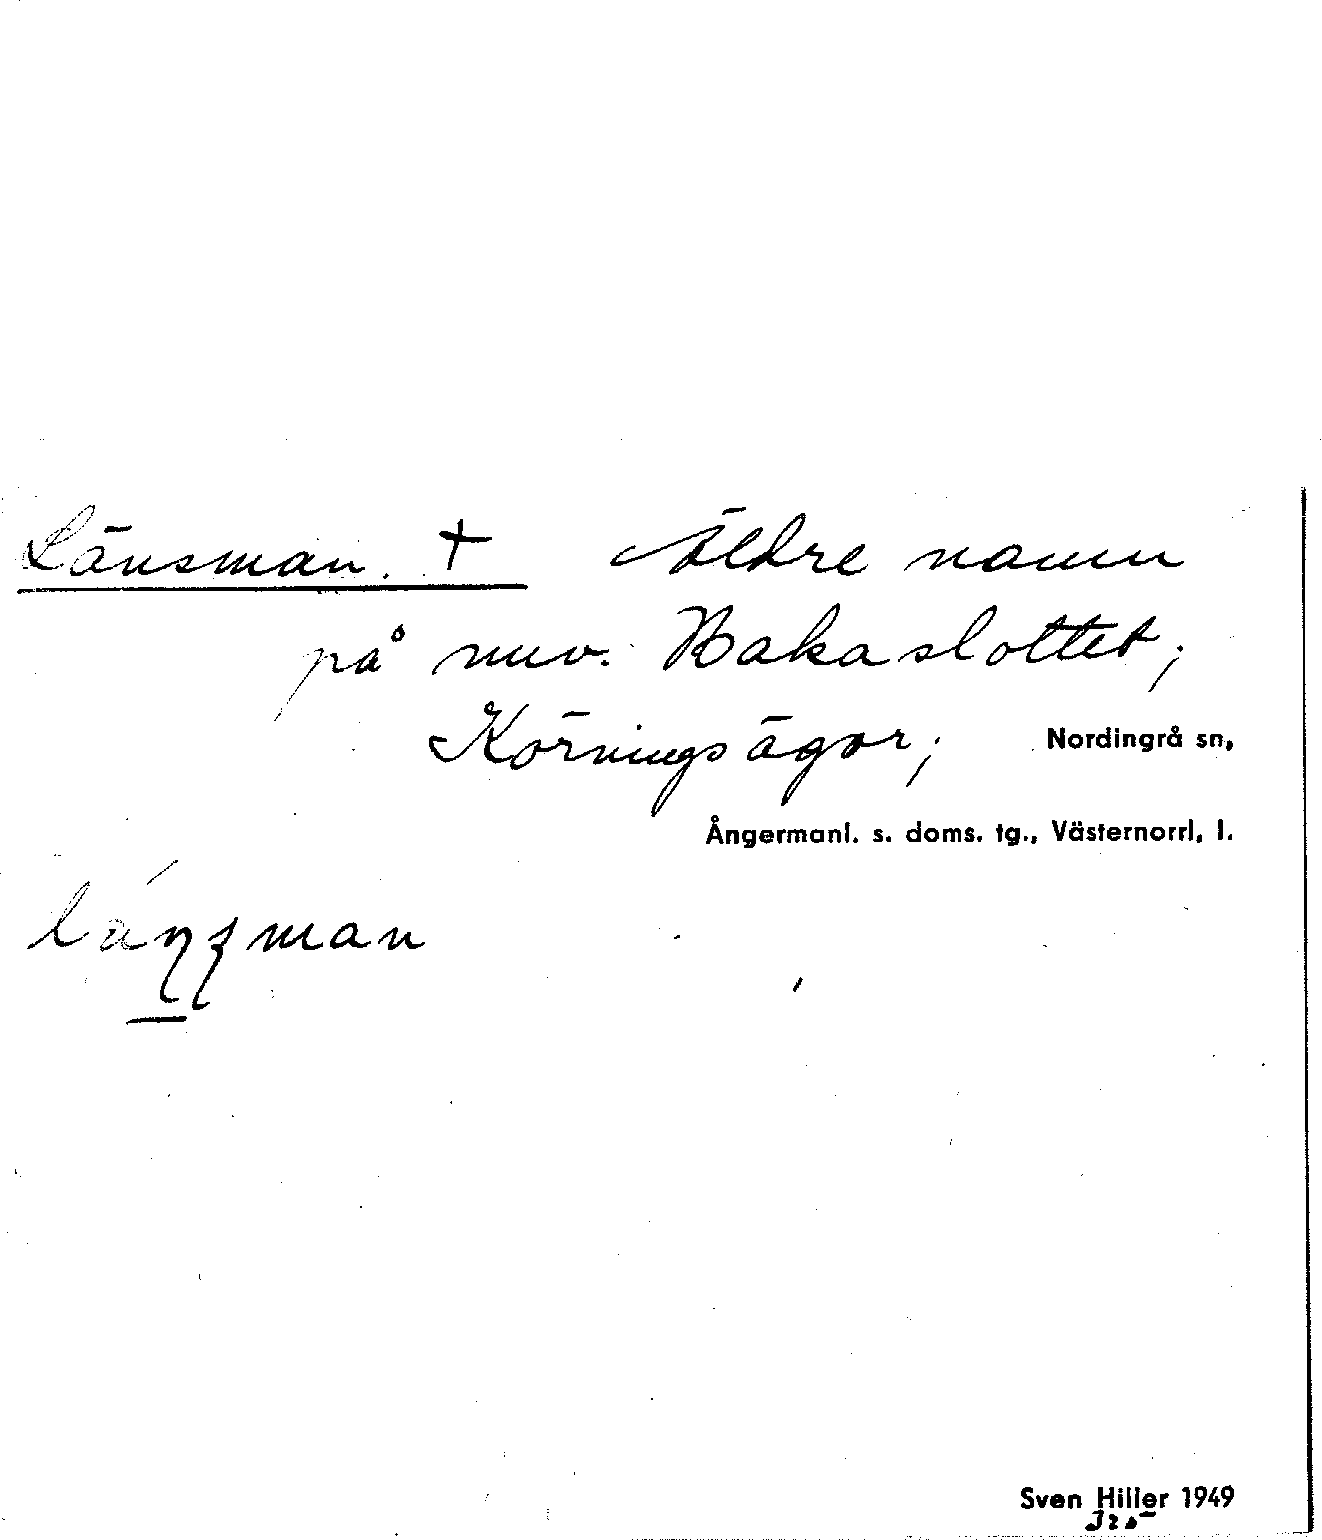 Länsman. + Äldre namn
på nuv. Bakaslottet;
Körningsägor; Nordingrå sn,
Ångermanl. s. doms. tg., Västernorrl. l.
Sven Hiller 1949